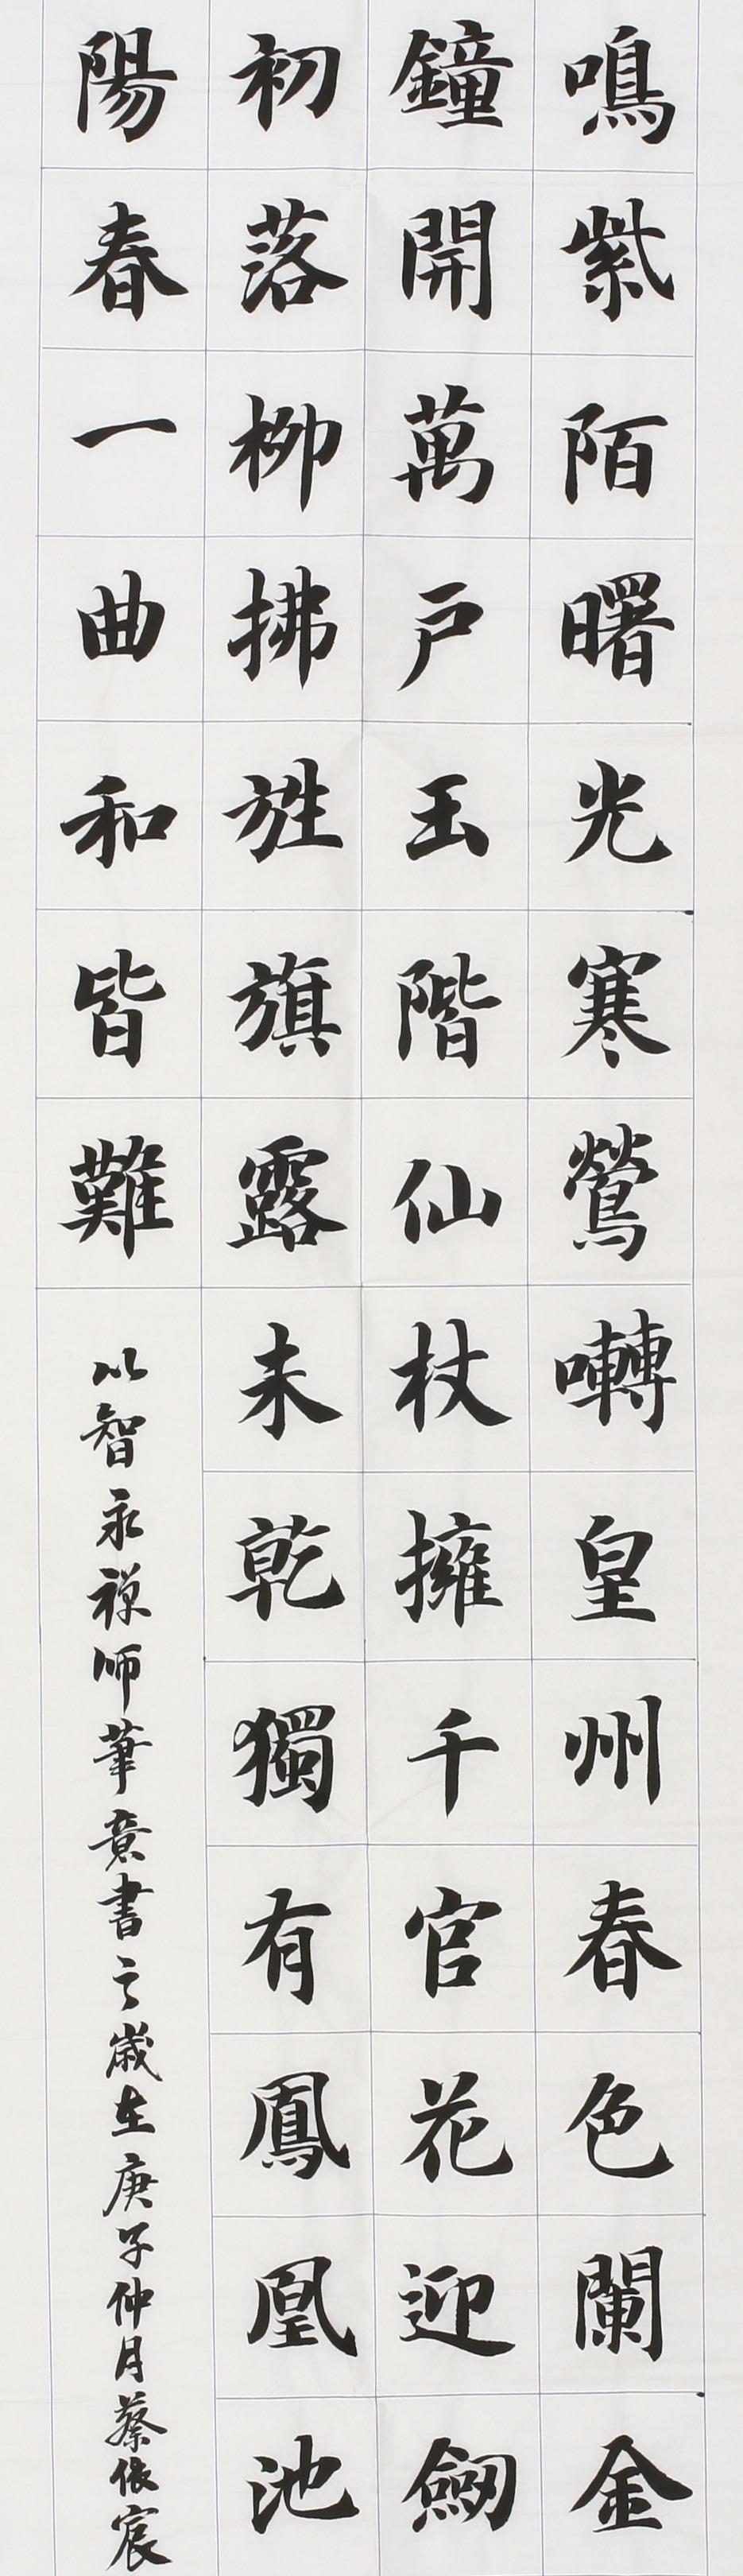 鳴紫陌曙光寒鶯囀皇州春色闌金
鐘開萬戶玉階仙杖擁千官花迎劒
初落柳拂旌旗露未乾獨有鳳凰池
陽春一曲和皆難
以智永禪師筆意書之歲在庚子仲月蔡依宸